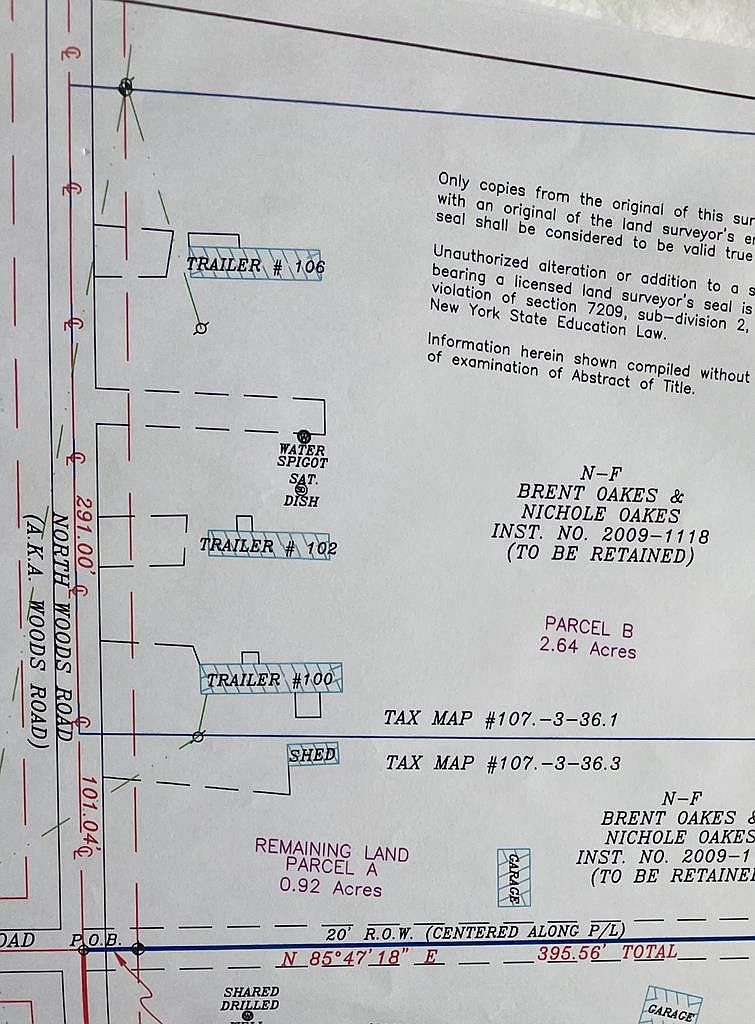 Only copies from the original of this
with an original of the land surveyor's
seal shall be considered to be valid true
Unauthorized alteration or addition to a
bearing a licensed land surveyor's seal is
violation of section 7209, sub-division 2,
New York State Education Law.
Information herein shown compiled without
of examination of Abstract of Title.
TRAILER # 106
WATER
SPIGOT
SAT.
DISH
N-F
BRENT OAKES &
NICHOLE OAKES
INST. NO. 2009-1118
(TO BE RETAINED)
TRAILER # 102
291.00'
NORTH WOODS ROAD
(A.K.A. WOODS ROAD)
PARCEL B
2.64 Acres
TRAILER #100
TAX MAP #107.-3-36.1
SHED
TAX MAP #107.-3-36.3
101.04'
N-F
BRENT OAKES &
NICHOLE OAKES
INST. NO. 2009-1
(TO BE RETAINE
REMAINING LAND
PARCEL A
0.92 Acres
GARAGE
OAD
P.O.B.
20' R.O.W. (CENTERED ALONG P/L)
N 85°47'18" E
395.56' TOTAL
SHARED
DRILLED
WELL
GARAGE